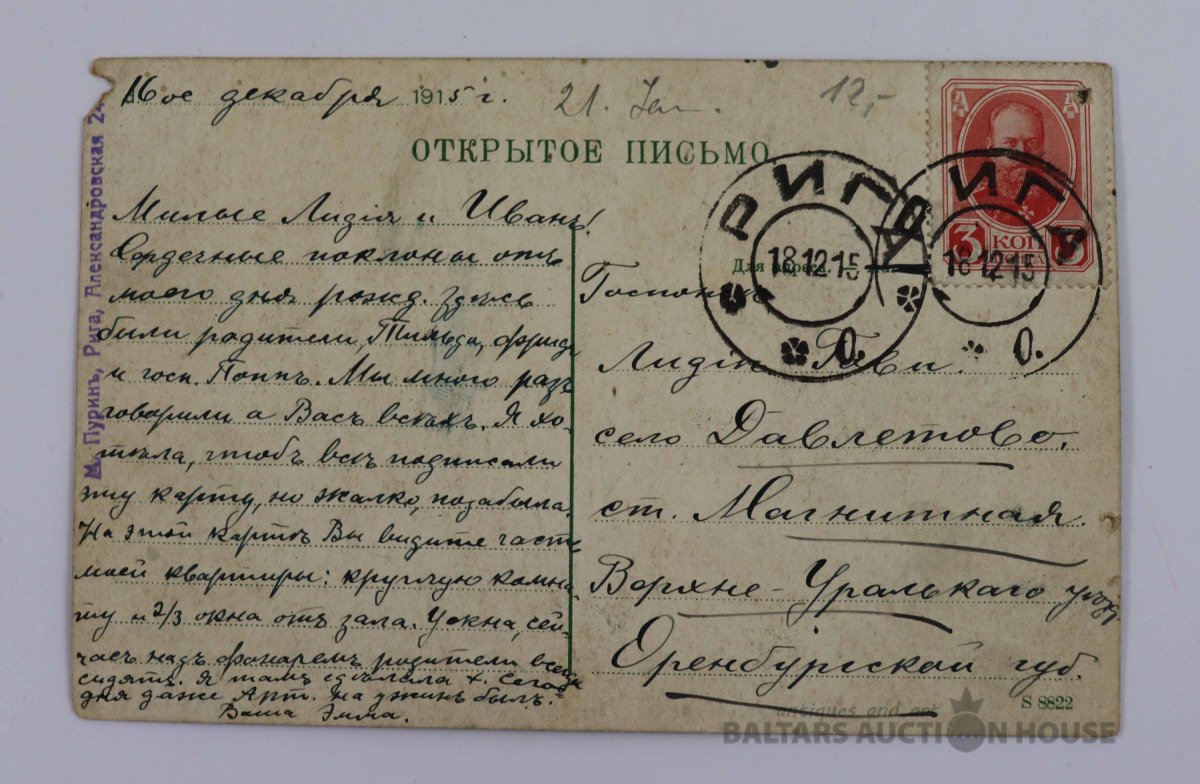 16ое декабря 1915 г.
21. Jan.
12,-
ОТКРЫТОЕ ПИСЬМО
М. Пуринъ, Рига, Александровская 2
РИГА
18 12 15
О.
РИГА
18 12 15
О.
3 КОП 3
Для адреса
Милые Лидія и Иванъ!
Сердечные поклоны отъ
моего дня рожд. Здѣсь
были родители, Тильда, Фрицъ
и госп. Поппъ. Мы много разъ
говорили а Васъ всѣхъ. Я хо-
тѣла, чтобъ всѣ подписали
эту карту, но жалко, позабыла.
На этой картѣ Вы видите часть
моей квартиры: круглую комна-
ту и 2/3 окна отъ зала. У окна, сей-
часъ надъ фонаремъ родители всегда
сидятъ. Я тамъ сдѣлала х. Сего-
дня даже Арт. на ужинъ былъ.
Ваша Эмма.
Госпожѣ
Лидіи
село Давлетово.
ст. Магнитная.
Верхне-Уральскаго уѣзд.
Оренбургской губ.
S 8822
antiques and art
BALTARS AUCTION HOUSE